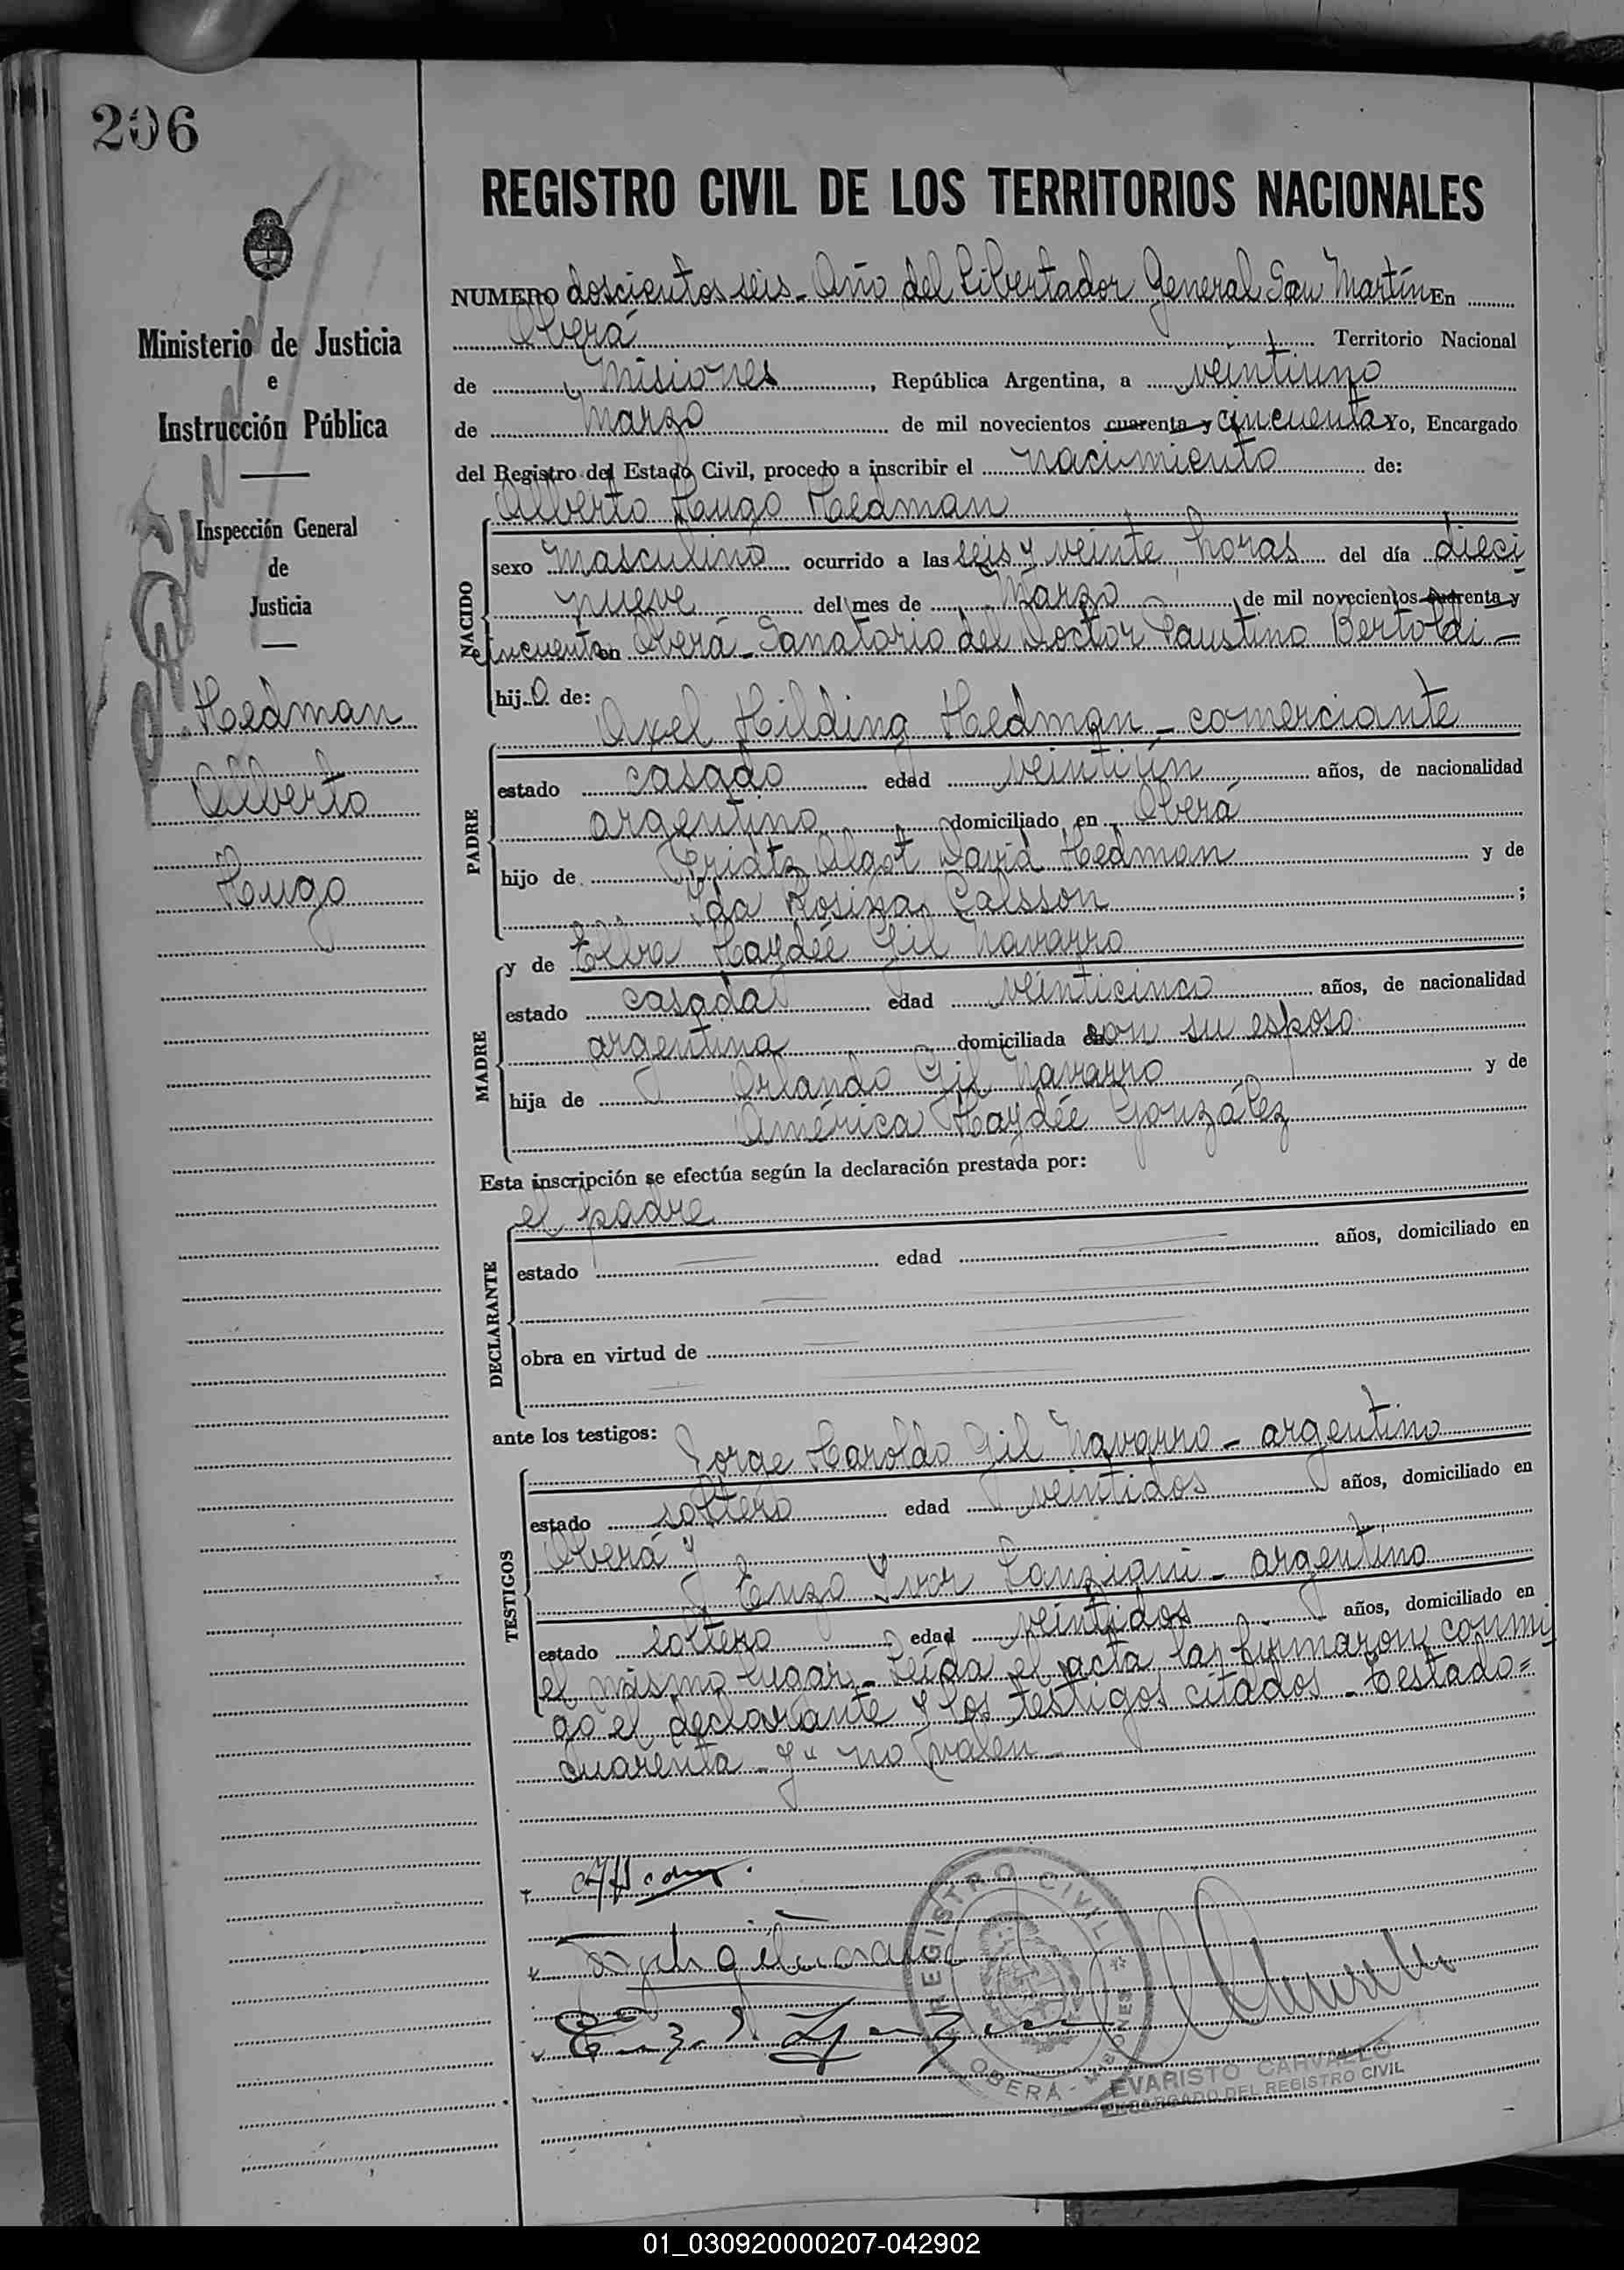 206
REGISTRO CIVIL DE LOS TERRITORIOS NACIONALES
Ministerio de Justicia
e
Instrucción Pública
Inspección General
de
Justicia
Hedman
Alberto
Hugo
NUMERO doscientos seis - Año del Libertador General San Martín En
Oberá Territorio Nacional
de Misiones, República Argentina, a veintiuno
de Marzo de mil novecientos cuarenta y cincuenta Yo, Encargado
del Registro del Estado Civil, procedo a inscribir el nacimiento de:
Alberto Hugo Hedman
NACIDO
sexo masculino ocurrido a las seis y veinte horas del día dieci
nueve del mes de Marzo de mil novecientos cuarenta y
cincuenta en Oberá - Sanatorio del Doctor Faustino Bertoldi -
hijo de:
Axel Hilding Hedman - comerciante
PADRE
estado casado edad veintiún años, de nacionalidad
argentino domiciliado en Oberá
hijo de Algot David Hedman y de
Ida Rosina Calsson;
y de Elba Haydée Gil Navarro
MADRE
estado casada edad veinticinco años, de nacionalidad
argentina domiciliada con su esposo
hija de Orlando Gil Navarro y de
América Haydée González
Esta inscripción se efectúa según la declaración prestada por:
el padre
DECLARANTE
estado edad años, domiciliado en
obra en virtud de
ante los testigos:
Jorge Haroldo Gil Navarro - argentino
TESTIGOS
estado soltero edad veintidos años, domiciliado en
Oberá y
Enzo Ivor Lanziani - argentino
estado soltero edad veintidos años, domiciliado en
el mismo lugar - Leída el acta la firmaron conmi
go el declarante y los testigos citados - Testado=
cuarenta - y" no valen -
REGISTRO CIVIL
OBERÁ - MISIONES
EVARISTO CARVALLO
ENCARGADO DEL REGISTRO CIVIL
01_030920000207-042902